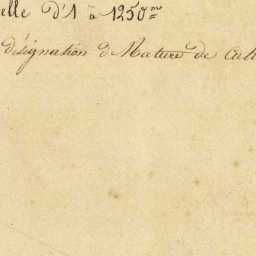 elle d'1 à 1250me
désignation d Nature de Cult